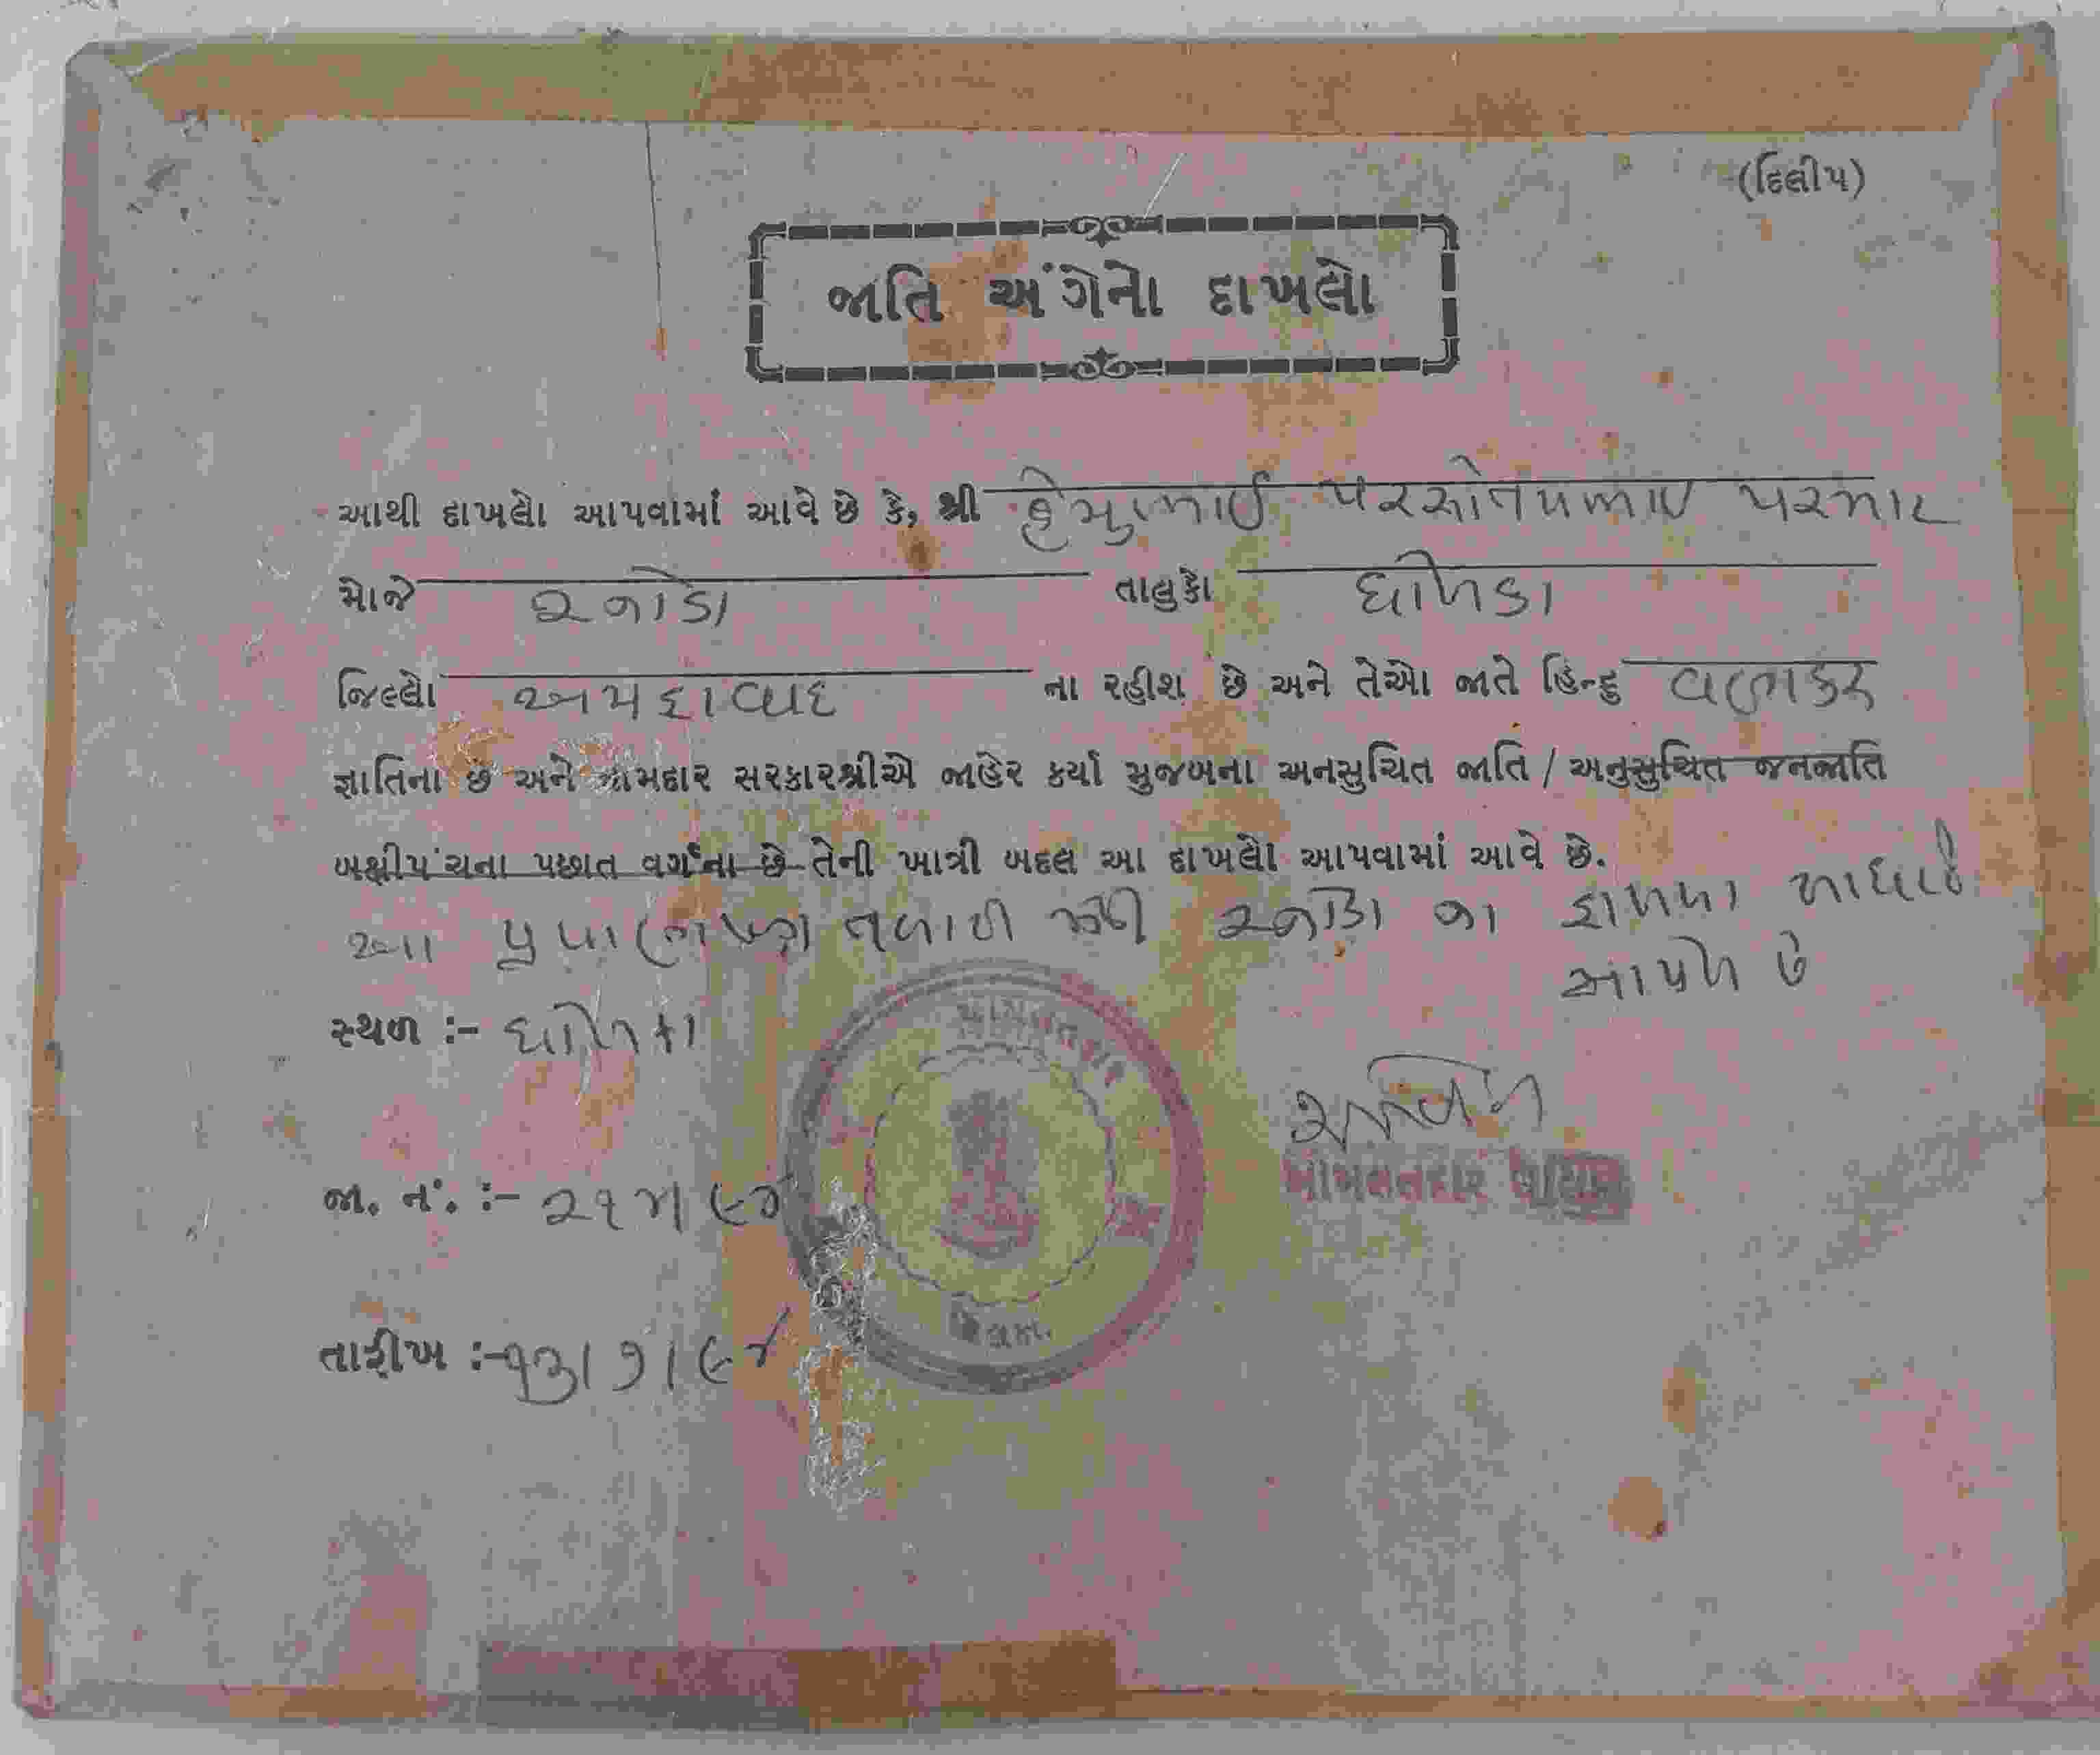 (દિલીપ)
જાતિ અંગેનો દાખલો
આથી દાખલો આપવામાં આવે છે કે, શ્રી હેમુભાઈ પરસોતમભાઈ પરમાર
મોજે રનોડા તાલુકો ધોળકા
જિલ્લો અમદાવાદ ના રહીશ છે અને તેઓ જાતે હિન્દુ વણકર
જ્ઞાતિના છે અને નામદાર સરકારશ્રીએ જાહેર કર્યા મુજબના અનસુચિત જાતિ / અનુસુચિત જનજાતિ
બક્ષીપંચના પછાત વર્ગના છે તેની ખાત્રી બદલ આ દાખલો આપવામાં આવે છે.
આ તલાટી શ્રી રનોડા ના દાખલા આધારે
આપેલ છે
સ્થળ :- ધોળકા
મામલતદાર
જા. નં. :-
તારીખ :- ૧૩/૭/૯૪